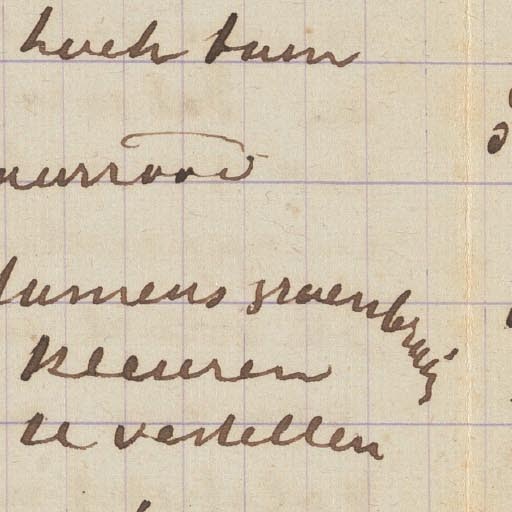 hoek tuin
uurrood
lumens groenbruin
kleuren
te vertellen